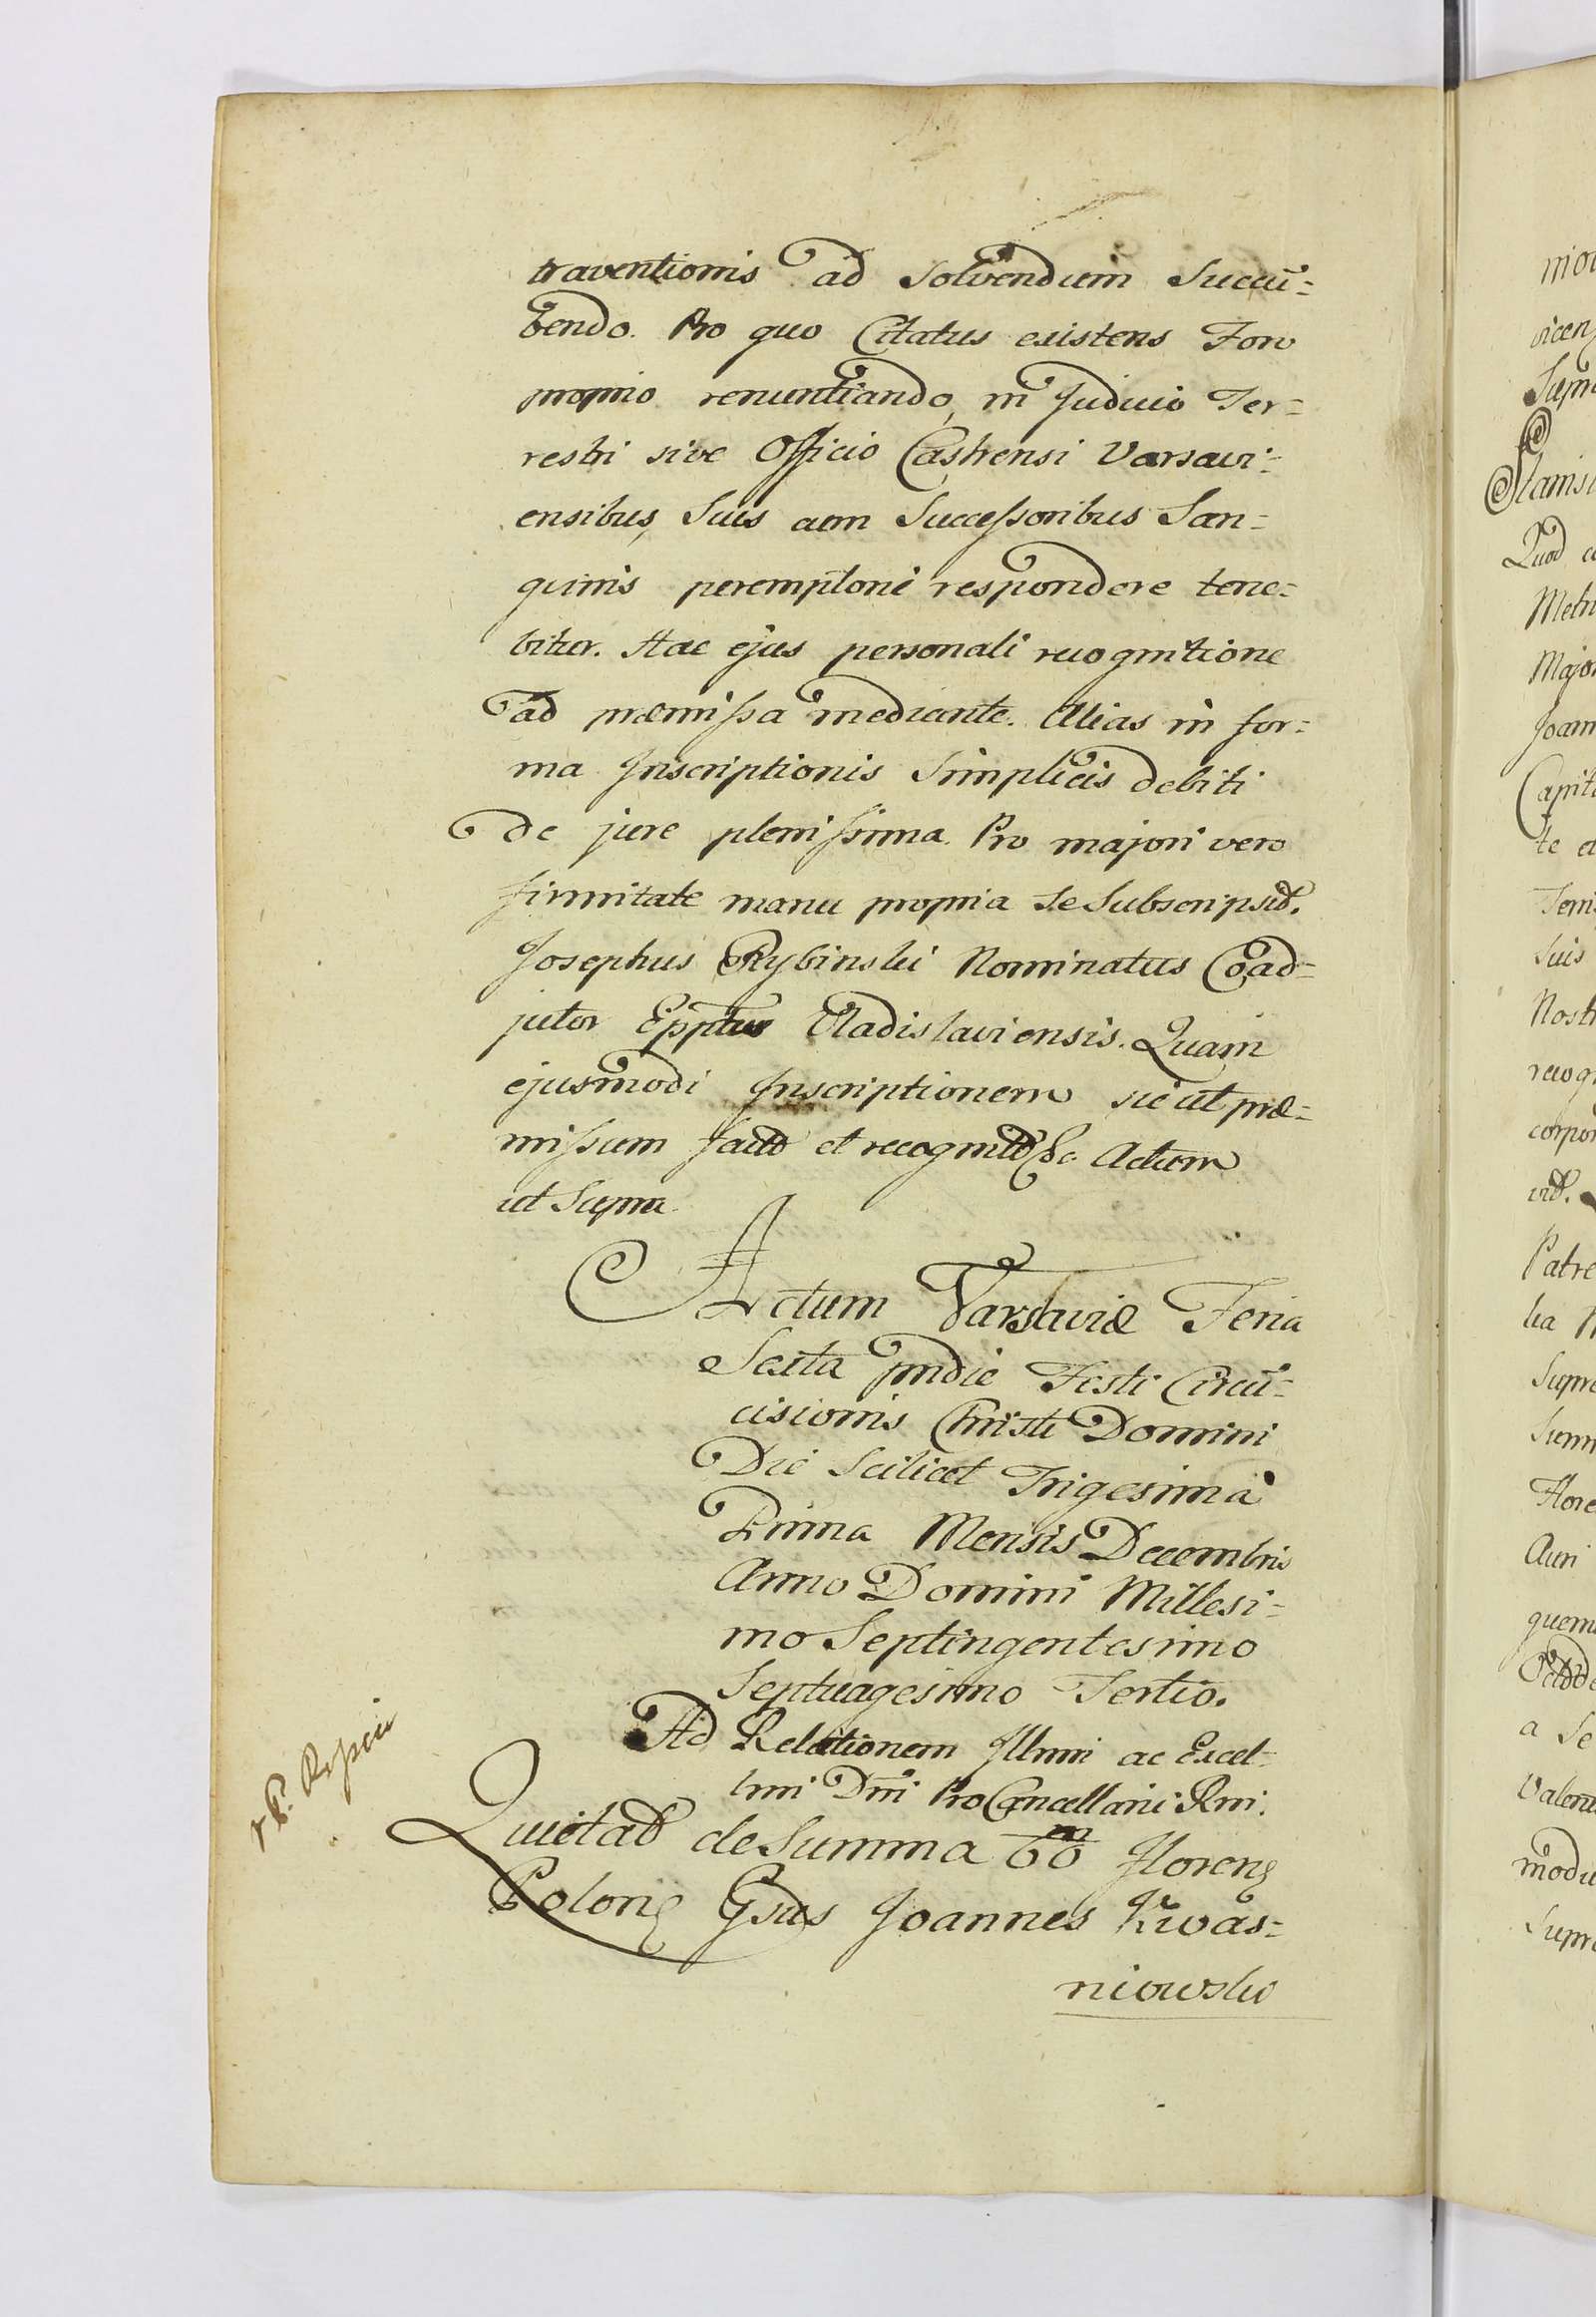 traventionis ad Solvendum Succū=
bendo. Pro quo Citatus existens Foro
proprio renuntiando, in Judicio Ter=
restri sive Officio Castrensi Varsavi=
ensibus, Suis cum Successoribus San=
guinis peremptorie respondere tene=
bitur. Hac ejus personali recognitione
ad præmissa mediante. Alias in for=
ma Inscriptionis Simplicis debiti
de jure plenissima. Pro majori vero
firmitate manu propria se Subscripsit.
Josephus Rybinski Nominatus Coad=
jutor Epptus Vladislaviensis. Quam
ejusmodi Inscriptionem sic ut præ=
missum factā et recognitā &c Actum
ut Supra.
Actum Varsaviæ Feria
Sexta pridie Festi Circū=
cisionis Christi Domini
Die Scilicet Trigesima
Prima Mensis Decembris
Anno Domini Millesi=
mo Septingentesimo
Septuagesimo Tertio.
Ad Relationem Illmi ac Excel=
lmi Dni ProCancellarii Rni.
Quietat de Summa 60 m Floren
Polon Gsus Joannes Kwas=
niowski
mor
vicen
Supra
Stanis
Quod
Metri
Major
Joann
Capit
te et
Terris
Suis
Nostr
recog
corpor
vit.
Patre
lia
Supra
Summ
Flore
Auri
quem
a Se
Valent
modu
Supra